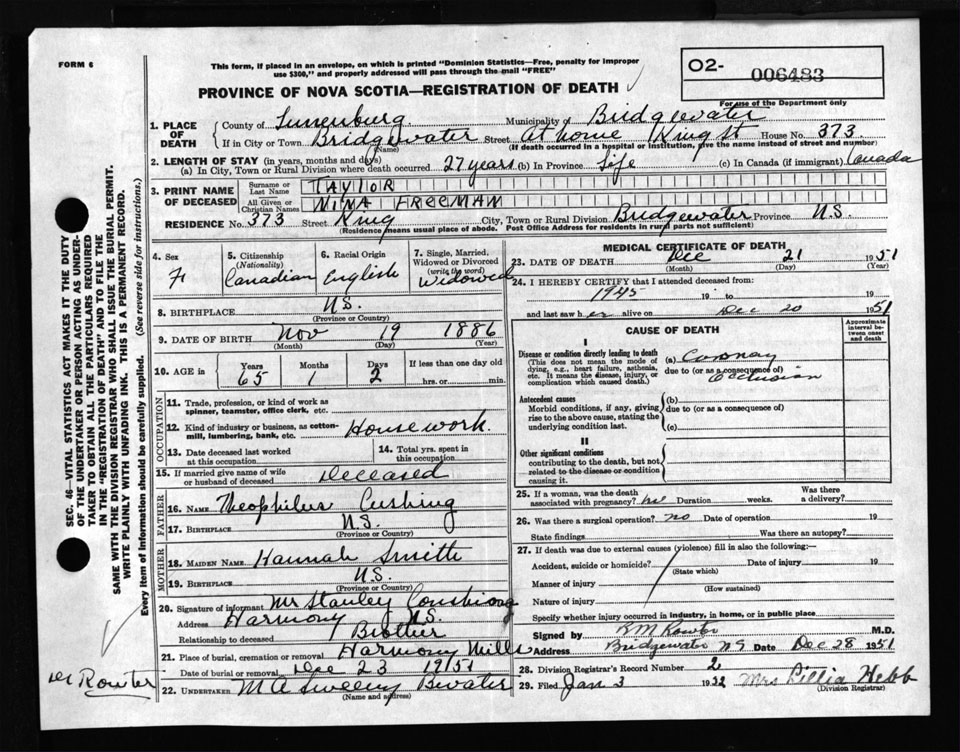 FORM 6
This form, if placed in an envelope, on which is printed "Dominion Statistics—Free, penalty for improper
use $300," and properly addressed will pass through the mail "FREE"
PROVINCE OF NOVA SCOTIA—REGISTRATION OF DEATH
O2- 006483
For use of the Department only
1. PLACE OF DEATH
County of Lunenburg Municipality of Bridgewater
If in City or Town Bridgewater Street At home King St House No. 373
(Name) (If death occurred in a hospital or institution, give the name instead of street and number)
2. LENGTH OF STAY (in years, months and days)
(a) In City, Town or Rural Division where death occurred 27 years (b) In Province Life (c) In Canada (if immigrant) Canada
3. PRINT NAME OF DECEASED
Surname or Last Name TAYLOR
All Given or Christian Names NINA FREEMAN
RESIDENCE No. 373 Street King City, Town or Rural Division Bridgewater Province N.S.
(Residence means usual place of abode. Post Office Address for residents in rural parts not sufficient)
4. Sex F
5. Citizenship (Nationality) Canadian
6. Racial Origin English
7. Single, Married, Widowed or Divorced (write the word) Widowed
8. BIRTHPLACE N.S.
(Province or Country)
9. DATE OF BIRTH Nov 19 1886
(Month) (Day) (Year)
10. AGE in Years 65 Months 1 Days 2 If less than one day hrs. or min.
OCCUPATION
11. Trade, profession, or kind of work as spinner, teamster, office clerk, etc.
12. Kind of industry or business, as cotton-mill, lumbering, bank, etc. Housework.
13. Date deceased last worked at this occupation
14. Total yrs. spent in this occupation
15. If married give name of wife or husband of deceased Deceased
FATHER
16. NAME Theophilus Cushing
17. BIRTHPLACE N.S.
(Province or Country)
MOTHER
18. MAIDEN NAME Hannah Smith
19. BIRTHPLACE N.S.
(Province or Country)
20. Signature of informant Mr Stanley
Address Harmony N.S.
Relationship to deceased Brother
21. Place of burial, cremation or removal Harmony Mills
Date of burial or removal Dec 23 1951
22. UNDERTAKER M A Sweeny Bwater
(Name and Address)
MEDICAL CERTIFICATE OF DEATH
23. DATE OF DEATH Dec 21 1951
(Month) (Day) (Year)
24. I HEREBY CERTIFY that I attended deceased from:
1945 19 to 19
and last saw her alive on Dec 20 1951
CAUSE OF DEATH
Approximate interval between onset and death
I
Disease or condition directly leading to death
(This does not mean the mode of dying, e.g., heart failure, asthenia, etc. It means the disease, injury, or complication which caused death.)
(a) Coronary
due to (or as a consequence of)
Occlusion
Antecedent causes
Morbid conditions, if any, giving rise to the above cause, stating the underlying condition last.
(b)
due to (or as a consequence of)
(c)
II
Other significant conditions
contributing to the death, but not related to the disease or condition causing it.
25. If a woman, was the death associated with pregnancy? no Duration weeks. Was there a delivery?
26. Was there a surgical operation? no Date of operation 19
State findings Was there an autopsy?
27. If death was due to external causes (violence) fill in also the following:—
Accident, suicide or homicide? Date of injury 19
(State which)
Manner of injury
(How sustained)
Nature of injury
Specify whether injury occurred in industry, in home, or in public place
Signed by M.D.
Address Bridgewater N S Date Dec 28 1951
28. Division Registrar's Record Number 2
29. Filed Jan 3 1952 Mrs Lillia Hebb
(Division Registrar)
SEC. 46—VITAL STATISTICS ACT MAKES IT THE DUTY
OF THE UNDERTAKER OR PERSON ACTING AS UNDER-
TAKER TO OBTAIN ALL THE PARTICULARS REQUIRED
IN THE "REGISTRATION OF DEATH" AND TO FILE THE
SAME WITH THE DIVISION REGISTRAR WHO SHALL ISSUE THE BURIAL PERMIT.
WRITE PLAINLY WITH UNFADING INK. THIS IS A PERMANENT RECORD.
Every item of information should be carefully supplied. (See reverse side for instructions.)